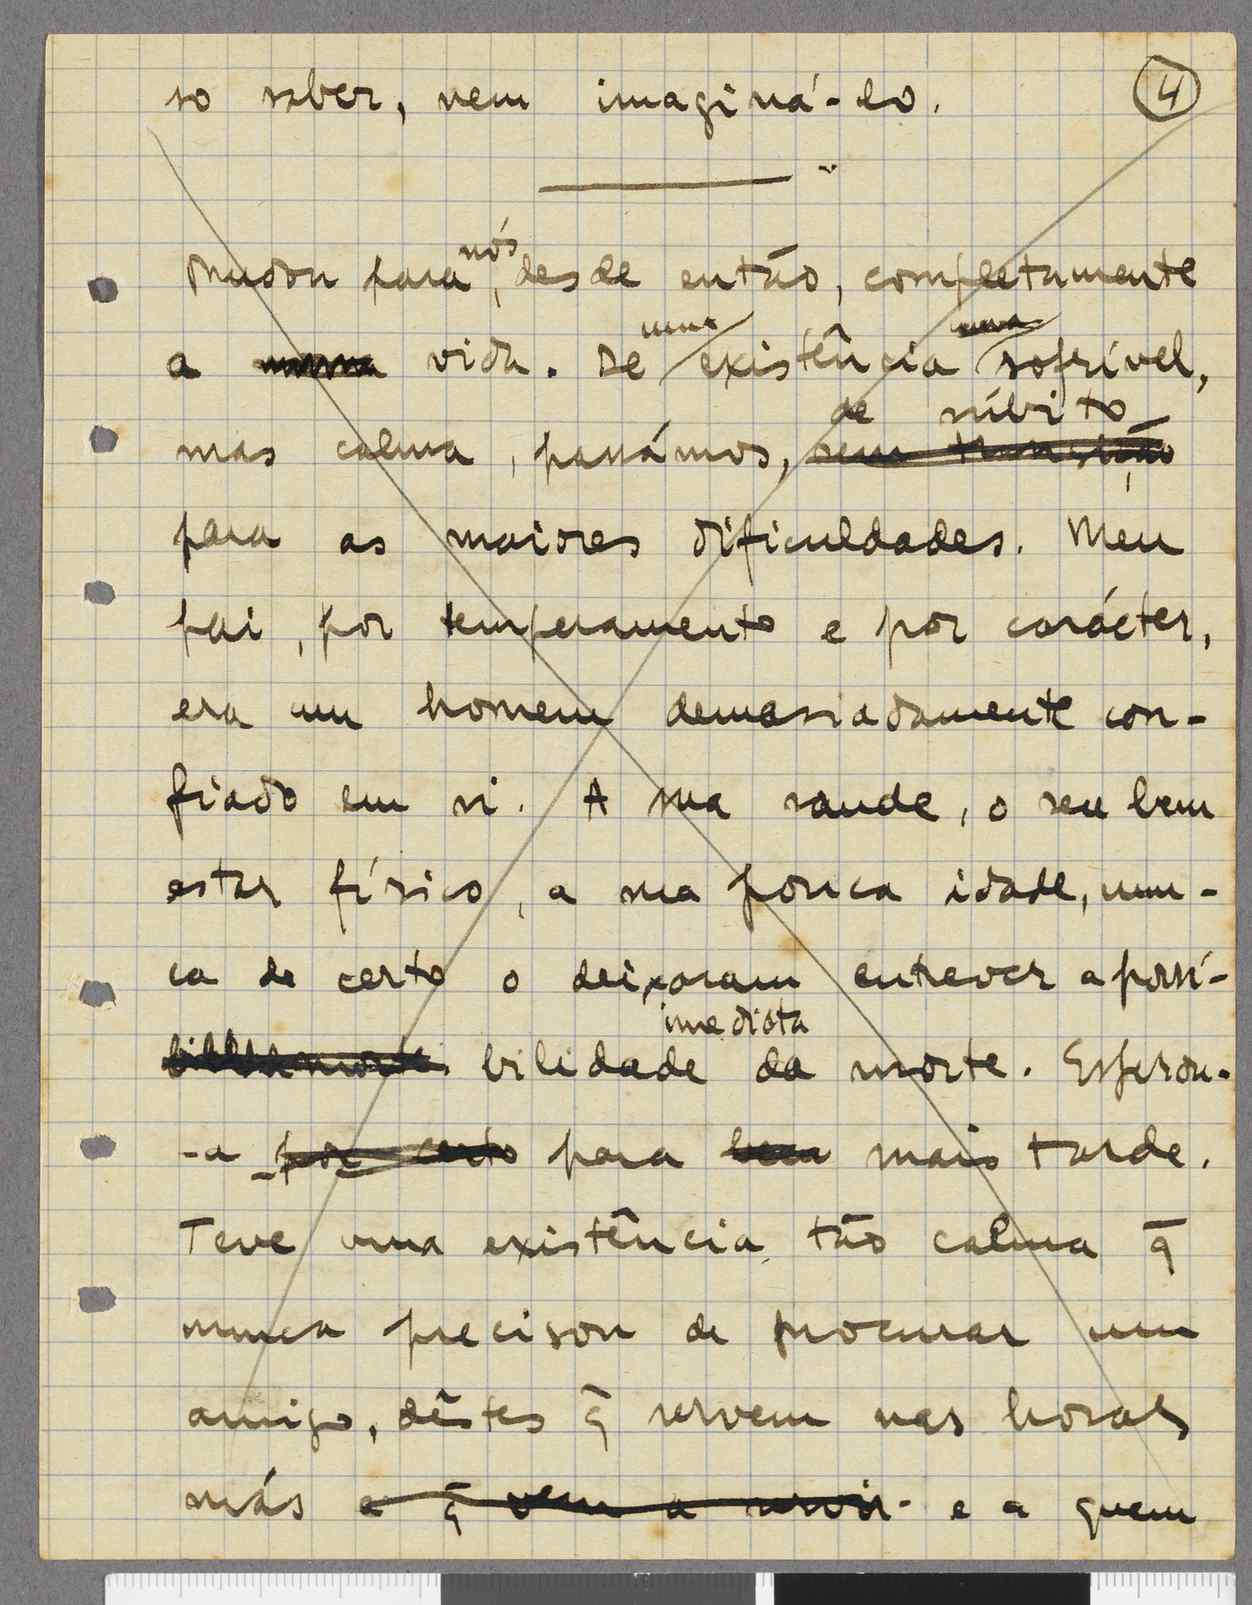 so saber, nem imaginá-lo.
4
nós
Mudou para, desde então, completamente
a vida. De existência sofrível,
uma uma
de súbito
mas calma, passámos, sem transição
para as maiores dificuldades. Meu
pai, por temperamento e por carácter,
era um homem demasiadamente con-
fiado em si. A sua saude, o seu bem
estar físico, a sua pouca idade, nun-
ca de certo o deixaram entrever a possi-
imediata
bilidade da morte. Esperou-
-a por certo para bem mais tarde.
Teve uma existência tão calma q̄
nunca precisou de procurar um
amigo, dêstes q̄ servem nas horas
más e q̄ vem a servir e a quem